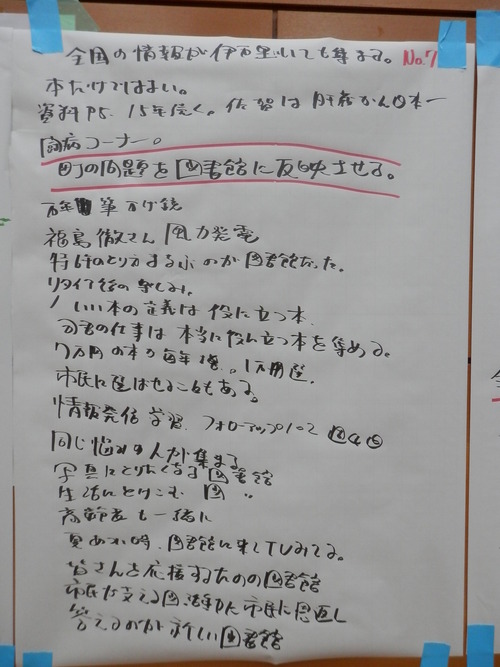 全国の情報が伊万里にいても集まる。 No.7
本だけではない。
資料P5. 15年続く。佐賀は肝臓がん日本一
闘病コーナー。
町の問題を図書館に反映させる。
万年筆 万げ鏡
福島徹さん 風力発電
特許のとり方するぶのが図書館だった。
リタイア後の楽しみ。
いい本の定義は役に立つ本
司書の仕事は本当に役に立つ本を集める。
7万円の本 毎年 1万冊選
市民に選ばせることもある。
情報発信 学習 フォローアップ1・2 ②④⑥
同じ悩みの人が集まる
写真にとりたくなる図書館
生活にとけこむ 図 〃
高齢者も一緒に
夏あつい時、図書館に来てTVみてる。
皆さんを応援するための図書館
市民が支える図 市民に恩返し
答えるのが新しい図書館